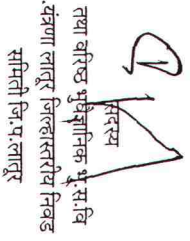 सदस्य
तथा वरिष्ठ भूवैज्ञानिक भू.स.वि
यंत्रणा लातूर जिल्हास्तरीय निवड
समिती जि.प.लातूर